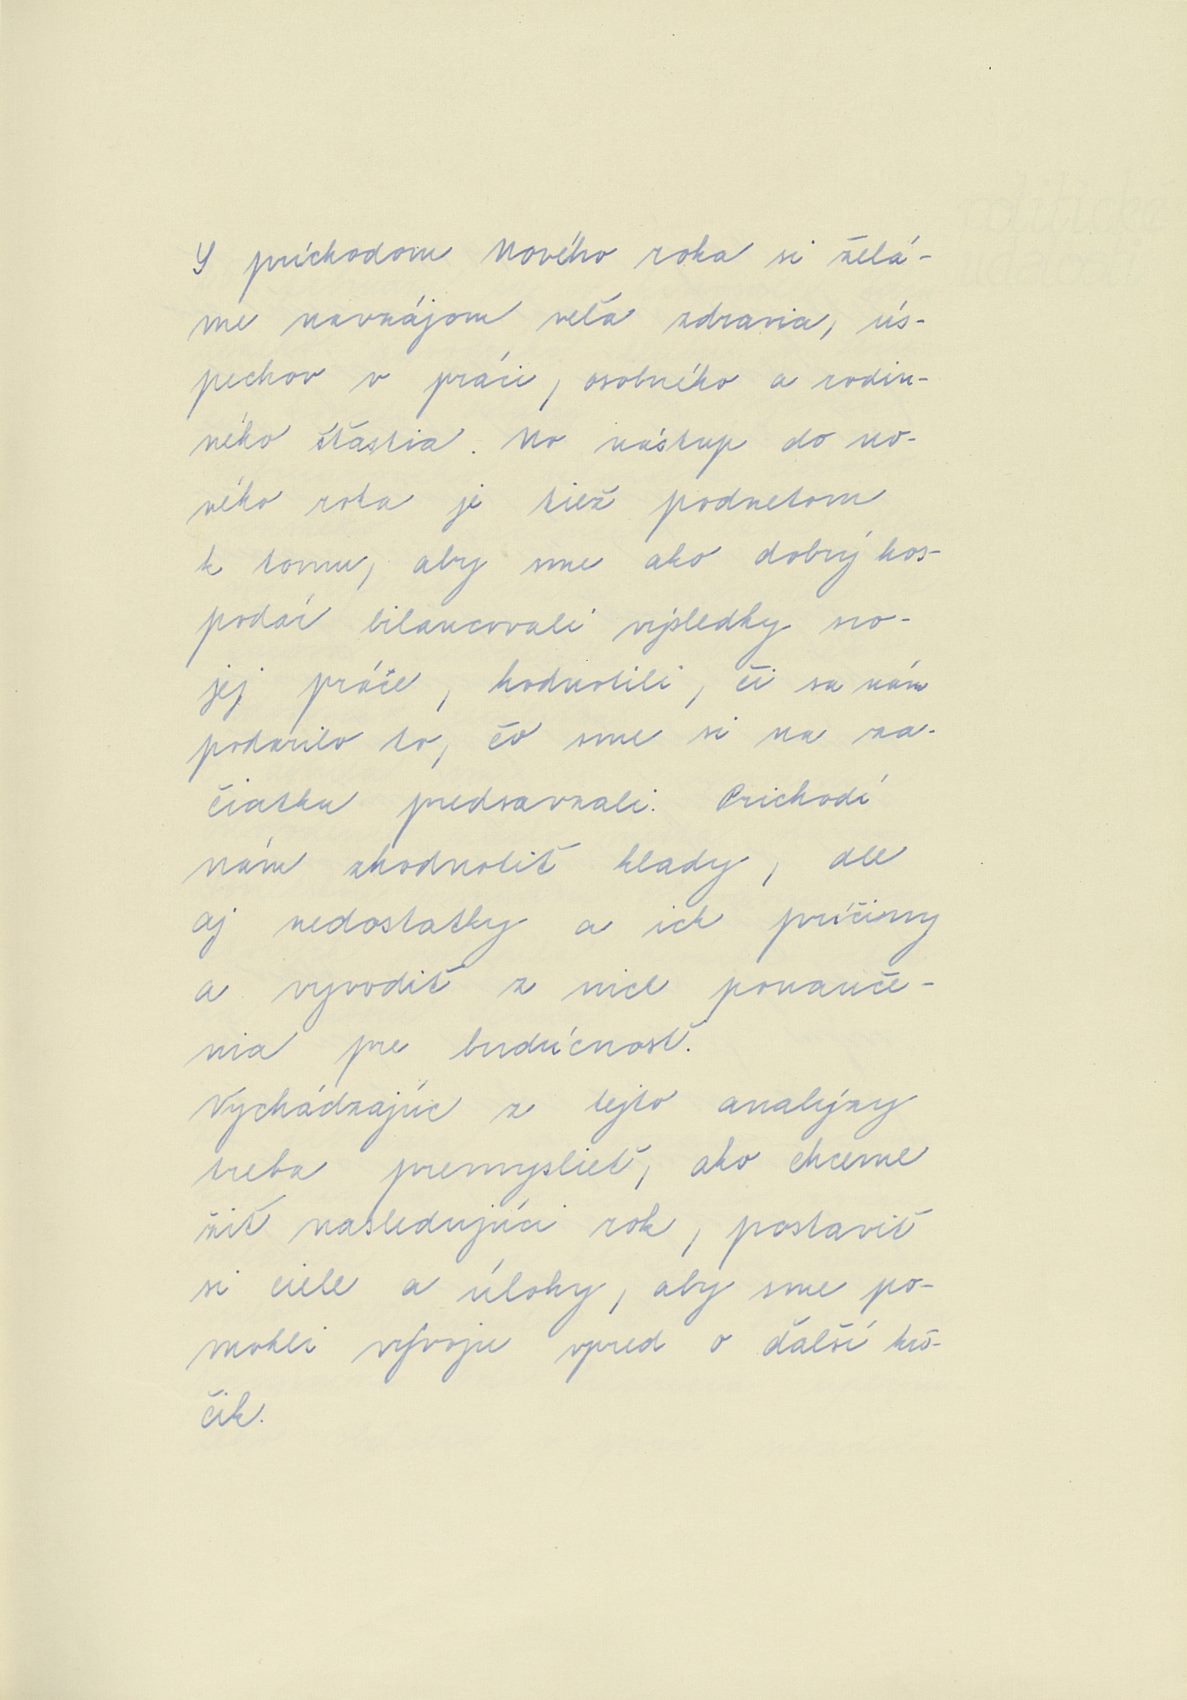 S príchodom Nového roka si želá-
me navzájom veľa zdravia, ús-
pechov v práci, osobného a rodin-
ného šťastia. No nástup do no-
vého roka je tiež podnetom
k tomu, aby sme ako dobrý hos-
podár bilancovali výsledky svo-
jej práce, hodnotili, či sa nám
podarilo to, čo sme si na za-
čiatku predsavzali. Prichodí
nám zhodnotiť klady, ale
aj nedostatky a ich príčiny
a vyvodiť z nich ponauče-
nia pre budúcnosť.
Vychádzajúc z tejto analýzy
treba premyslieť, ako chceme
žiť nasledujúci rok, postaviť
si ciele a úlohy, aby sme po-
mohli vývoju vpred o ďalší krô-
čik.